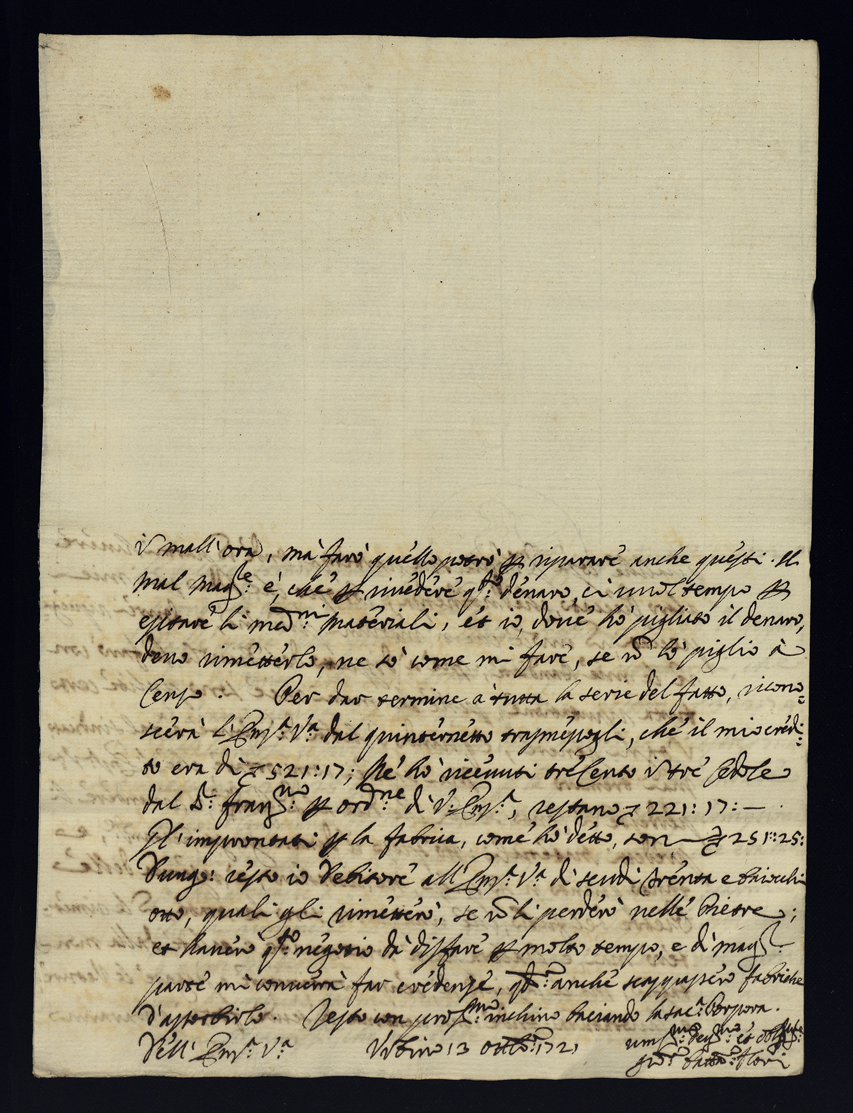 mall'ora, mà farò quello potrò p riparare anche questi. Il
mal magre è, che p rivedere qto denaro, ci vuol tempo p
esitare li medmi materiali, et io, dove hò pigliato il denaro,
devo rimetterlo, ne sò come mi fare, se nõ lo piglio à
Censo. Per dar termine a tutta la serie del fatto, ricono=
scerà l'Emza Va dal quinternetto trasmessogli, che il mio credi=
to era di 521:17; Ne hò ricevuti trè Cento trè Cedole
dal Sr: p ordne di V. Emza, restano 221:17:—.
Gl'improntati p la fabrica, come hò detto, son 251:25:
Dunqe: resto io Debitore all'Emza Va di scudi trenta e baiocchi
otto, quali gli rimetterò, se nõ li perderò nelle Pietre;
et haverò qto negotio dà disfare p molto tempo, e di magr
parte mi converrà far credenze, anche fabriche
d'assorbirlo. Resto con profmo inchino baciando la sac: Porpora.
Dell'Emza Va Urbino 13 ottob: 1721